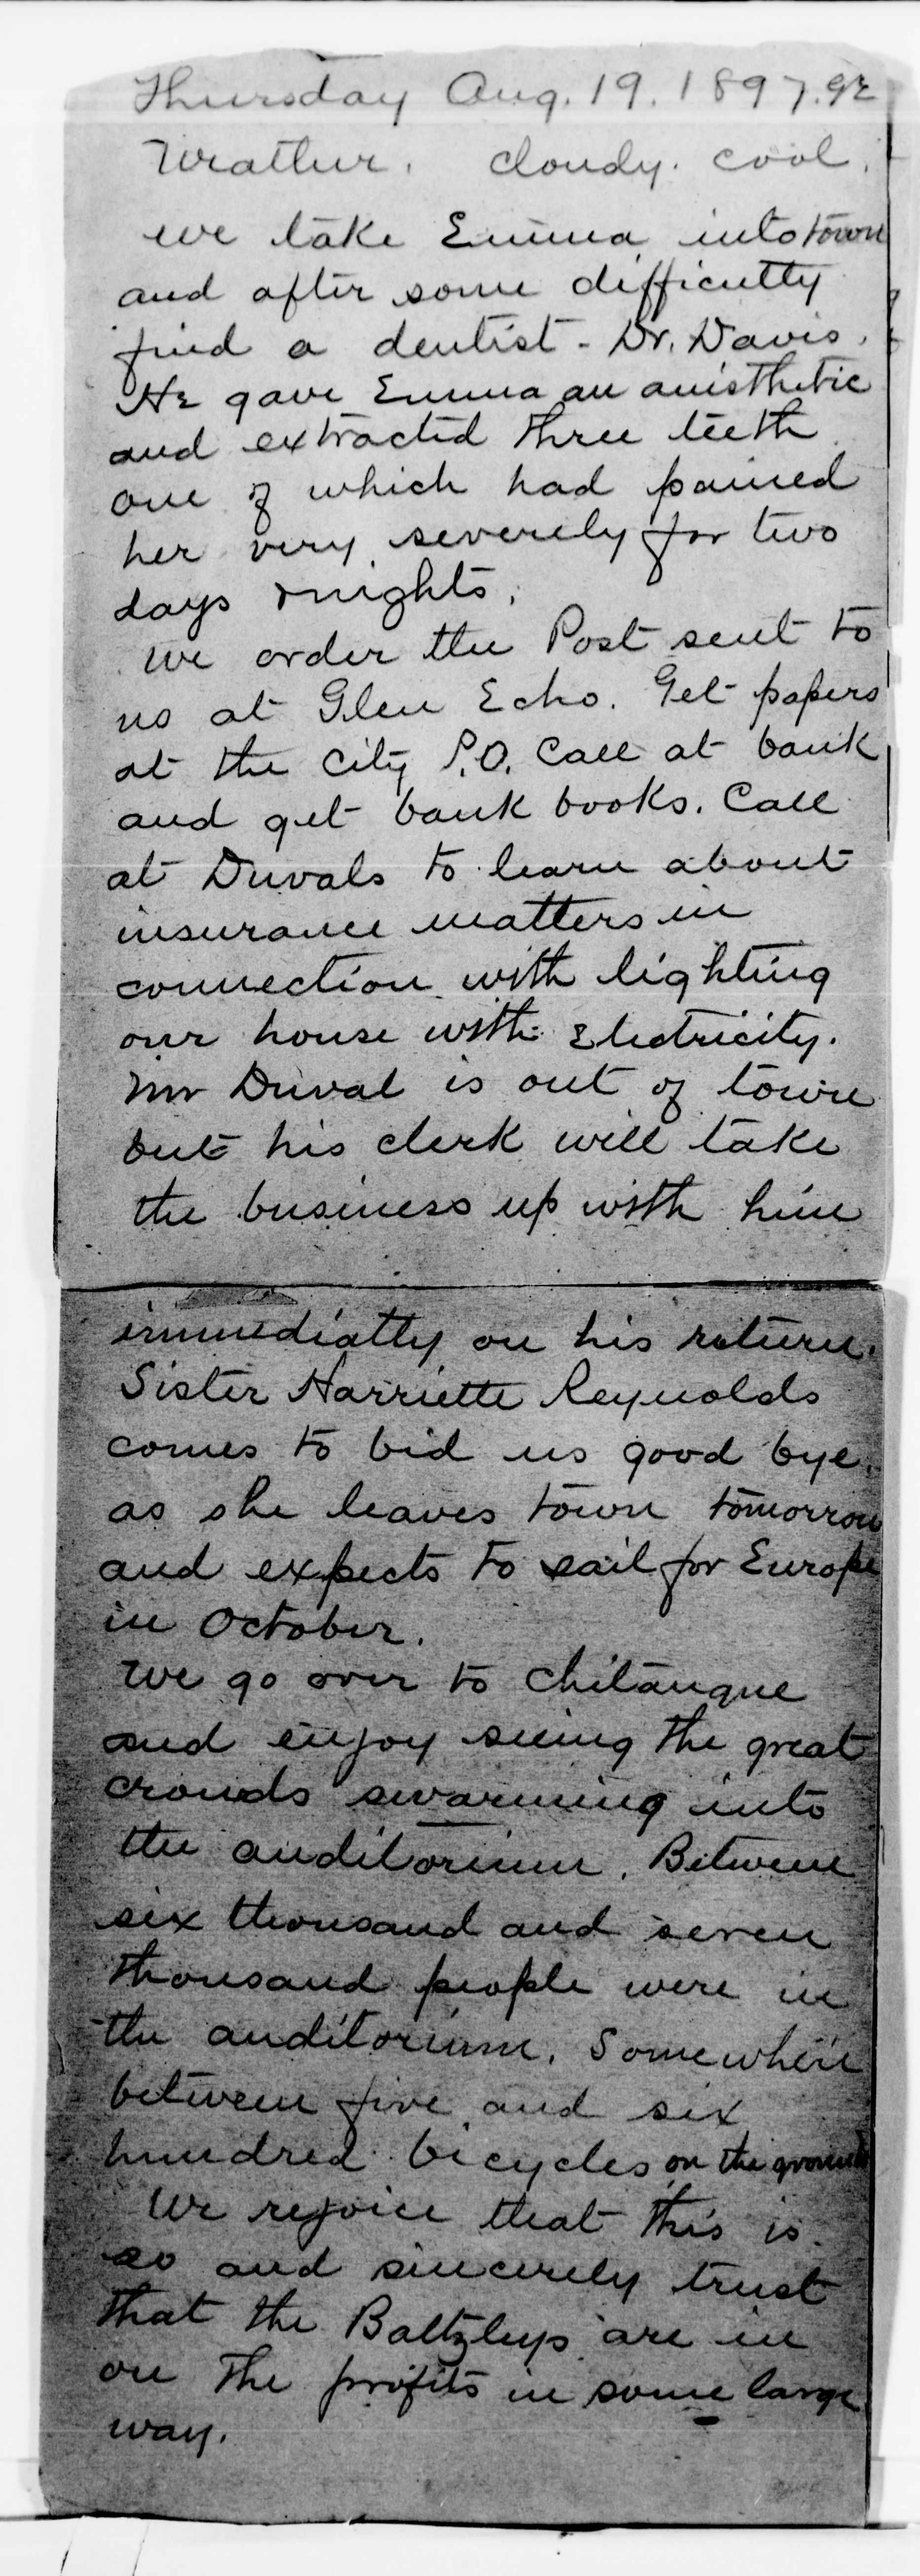 Thursday Aug. 19. 1897. GE
Weather. cloudy. cool.
we take Emma into town
and after some difficulty
find a dentist - Dr. Davis.
He gave Emma an anisthetic
and extracted three teeth
one of which had pained
her very severely for two
days & nights.
We order the Post sent to
us at Glen Echo. Get papers
at the City P.O. Call at bank
and get bank books. Call
at Duvals to learn about
insurance matters in
connection with lighting
our house with Electricity.
Mr Duval is out of town
but his clerk will take
the business up with him
immediatly on his return.
Sister Harriette Reynolds
comes to bid us good bye.
as she leaves town tomorrow
and expects to sail for Europe
in October.
We go over to Chitauque
and enjoy seeing the great
crowds swarming into
the auditorium. Between
six thousand and seven
thousand people were in
the auditorium. Somewhere
between five and six
hundred bicycles on the grounds
We rejoice that this is
so and sincerely trust
that the Baltzleys are in
on the profits in some large
way.